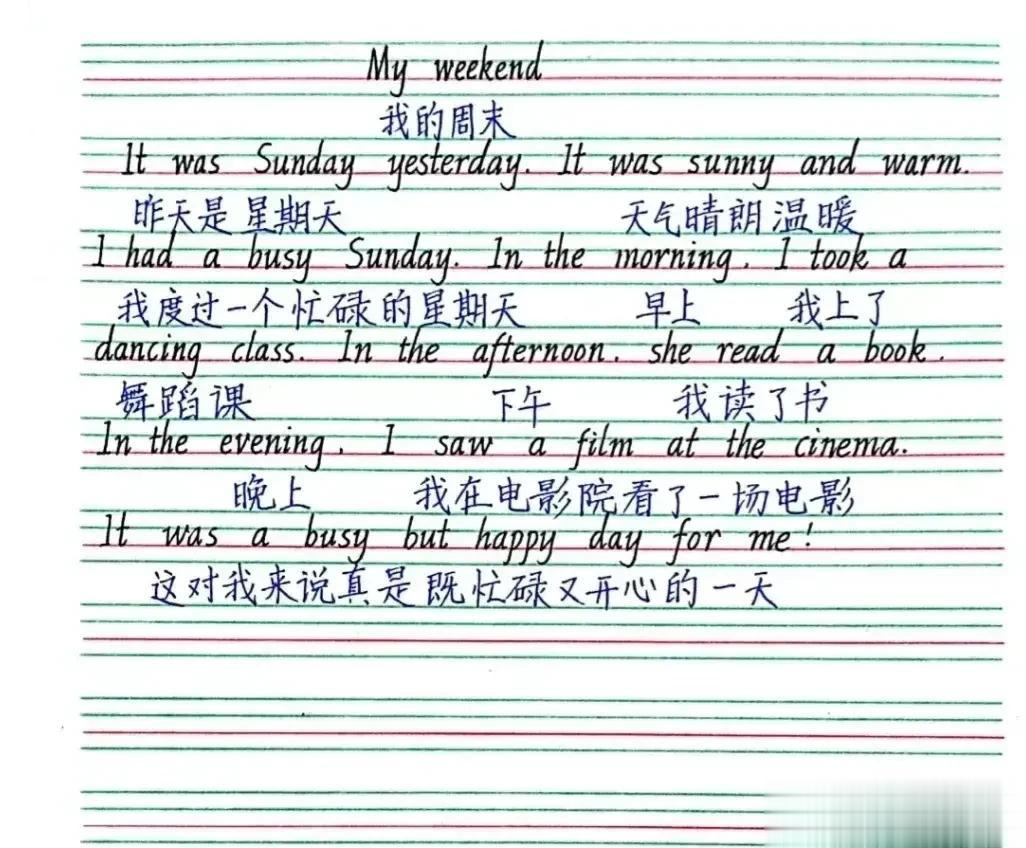 My weekend
我的周末
It was Sunday yesterday. It was sunny and warm.
昨天是星期天 天气晴朗温暖
I had a busy Sunday. In the morning, I took a
我度过一个忙碌的星期天 早上 我上了
dancing class. In the afternoon, she read a book.
舞蹈课 下午 我读了书
In the evening, I saw a film at the cinema.
晚上 我在电影院看了一场电影
It was a busy but happy day for me!
这对我来说真是既忙碌又开心的一天